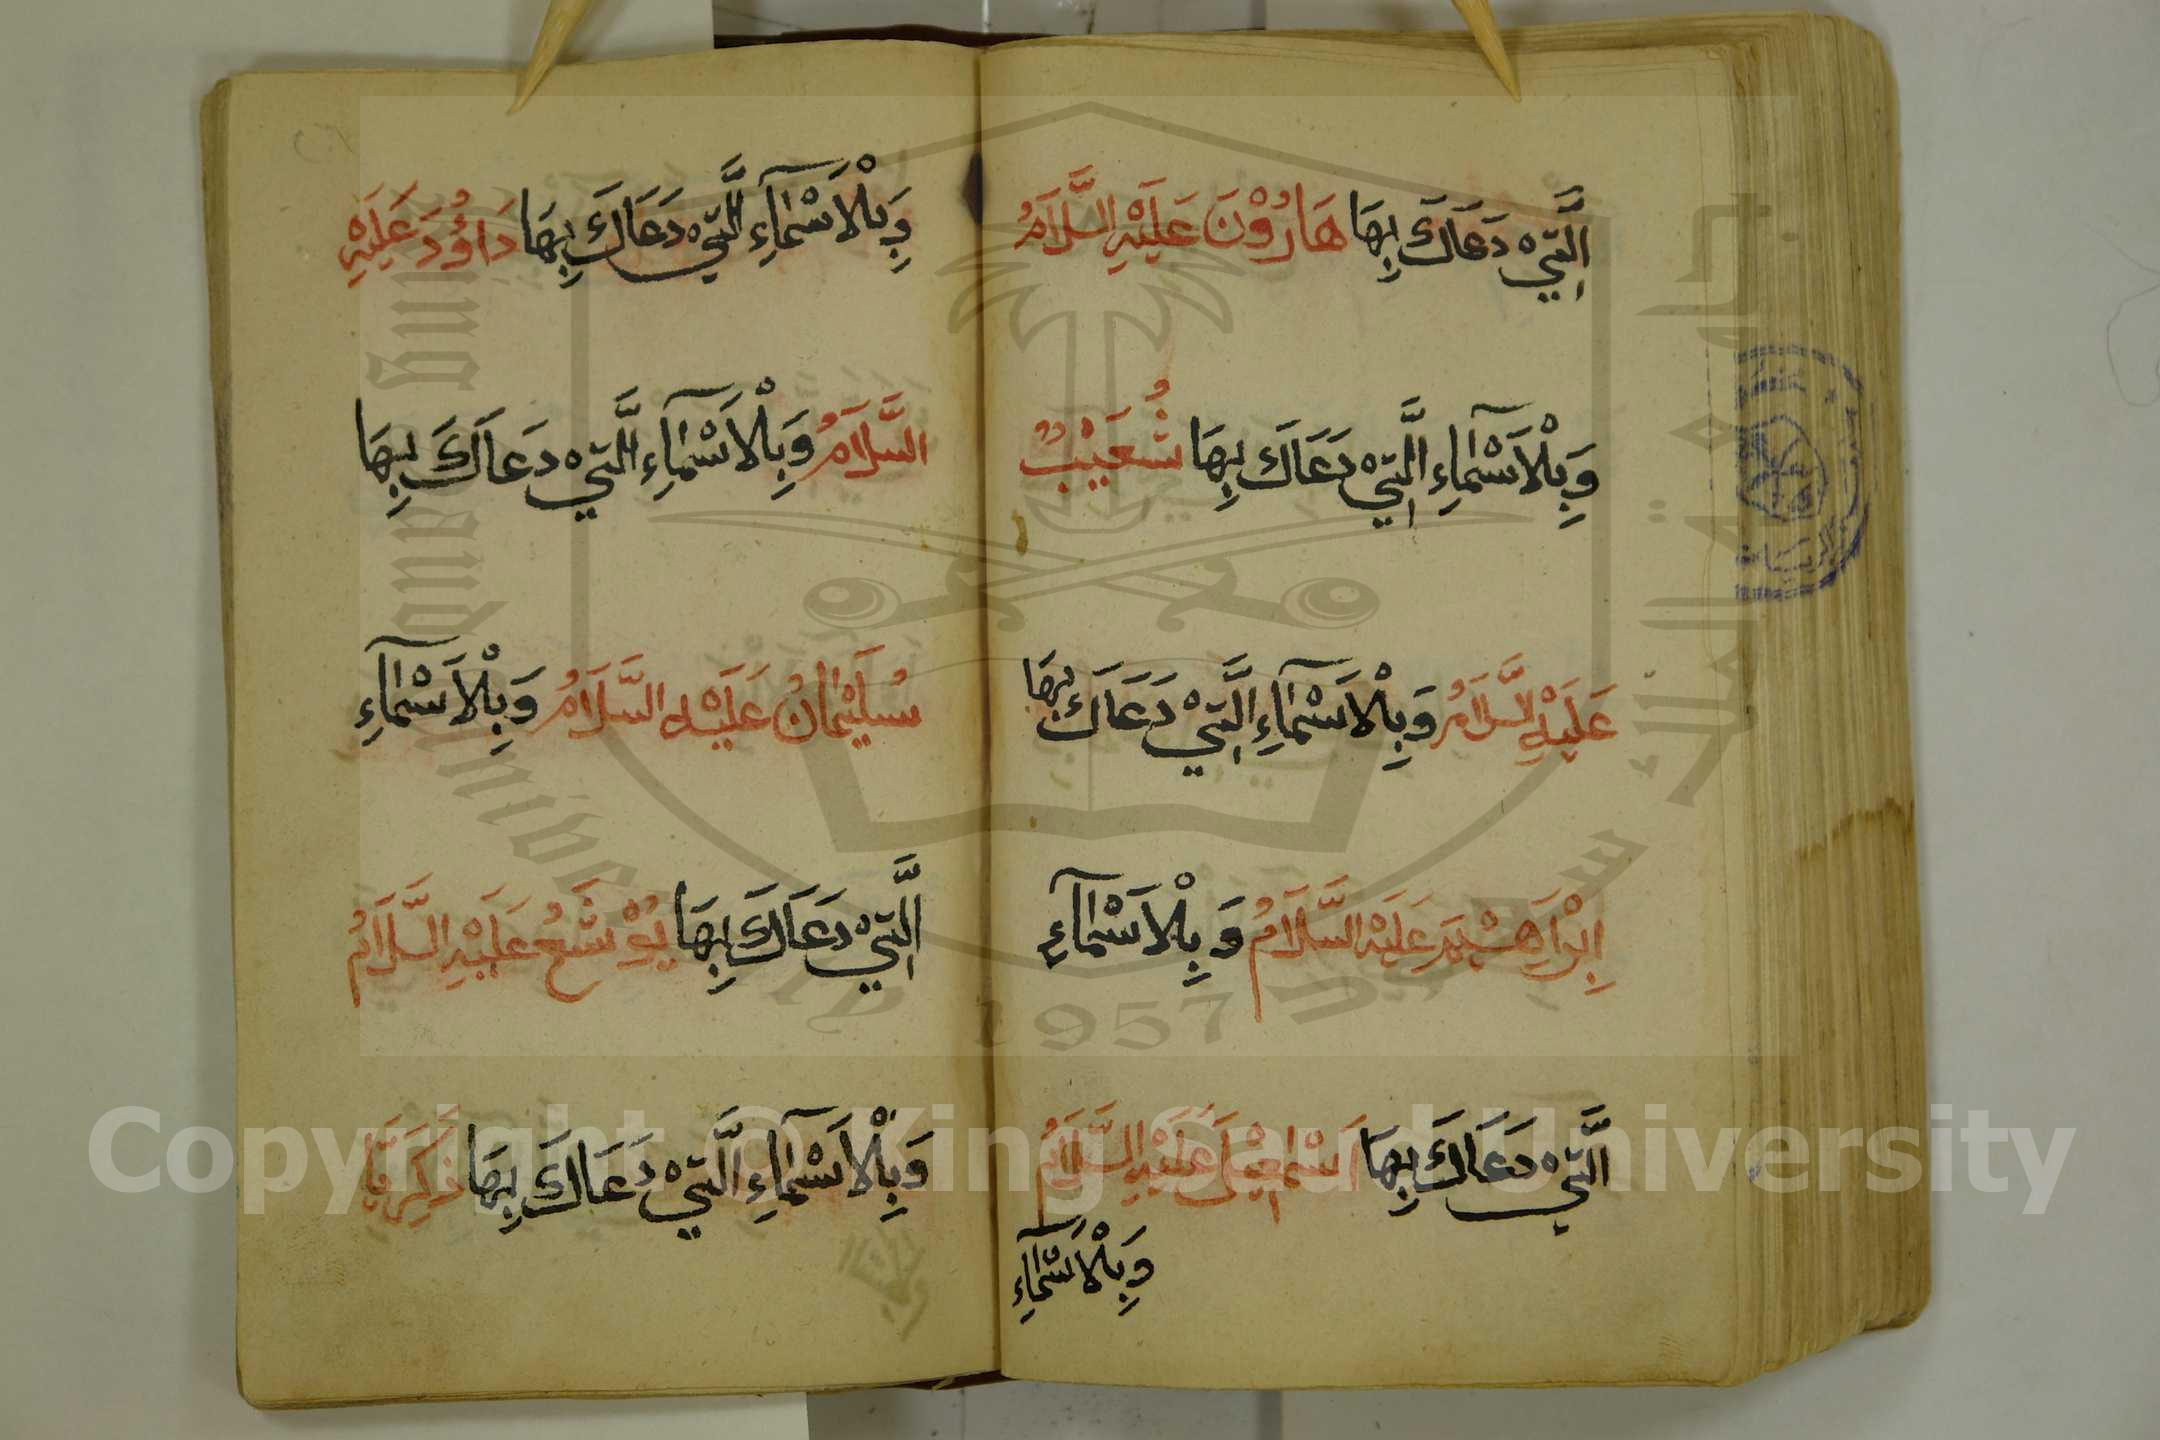 الَّتِيْ دَعَاكَ بِهَا هَارُوْنَ عَلَيْهِ السَّلَامُ
وَبِلْاَسْمَآءِ الَّتِيْ دَعَاكَ بِهَا شُعَيْبٌ
عَلَيْهِ السَّلَامُ وَبِلْاَسْمَآءِ الَّتِيْ دَعَاكَ بِهَا
اِبْرَاهِيْمَ عَلَيْهِ السَّلَامُ وَبِلْاَسْمَآءِ
الَّتِيْ دَعَاكَ بِهَا اَسْمٰعِيْلَ عَلَيْهِ السَّلَامُ
وَبِلْاَسْمَآءِ
وَبِلْاَسْمَآءِ الَّتِيْ دَعَاكَ بِهَا دَاوُدَ عَلَيْهِ
السَّلَامُ وَبِلْاَسْمَآءِ الَّتِيْ دَعَاكَ بِهَا
سُلَيْمَانُ عَلَيْهِ السَّلَامُ وَبِلْاَسْمَآءِ
الَّتِيْ دَعَاكَ بِهَا يُوْشَعُ عَلَيْهِ السَّلَامُ
وَبِلْاَسْمَآءِ الَّتِيْ دَعَاكَ بِهَا زَكَرِيَّا
Copyright © King Saud University
King Saud University
1957